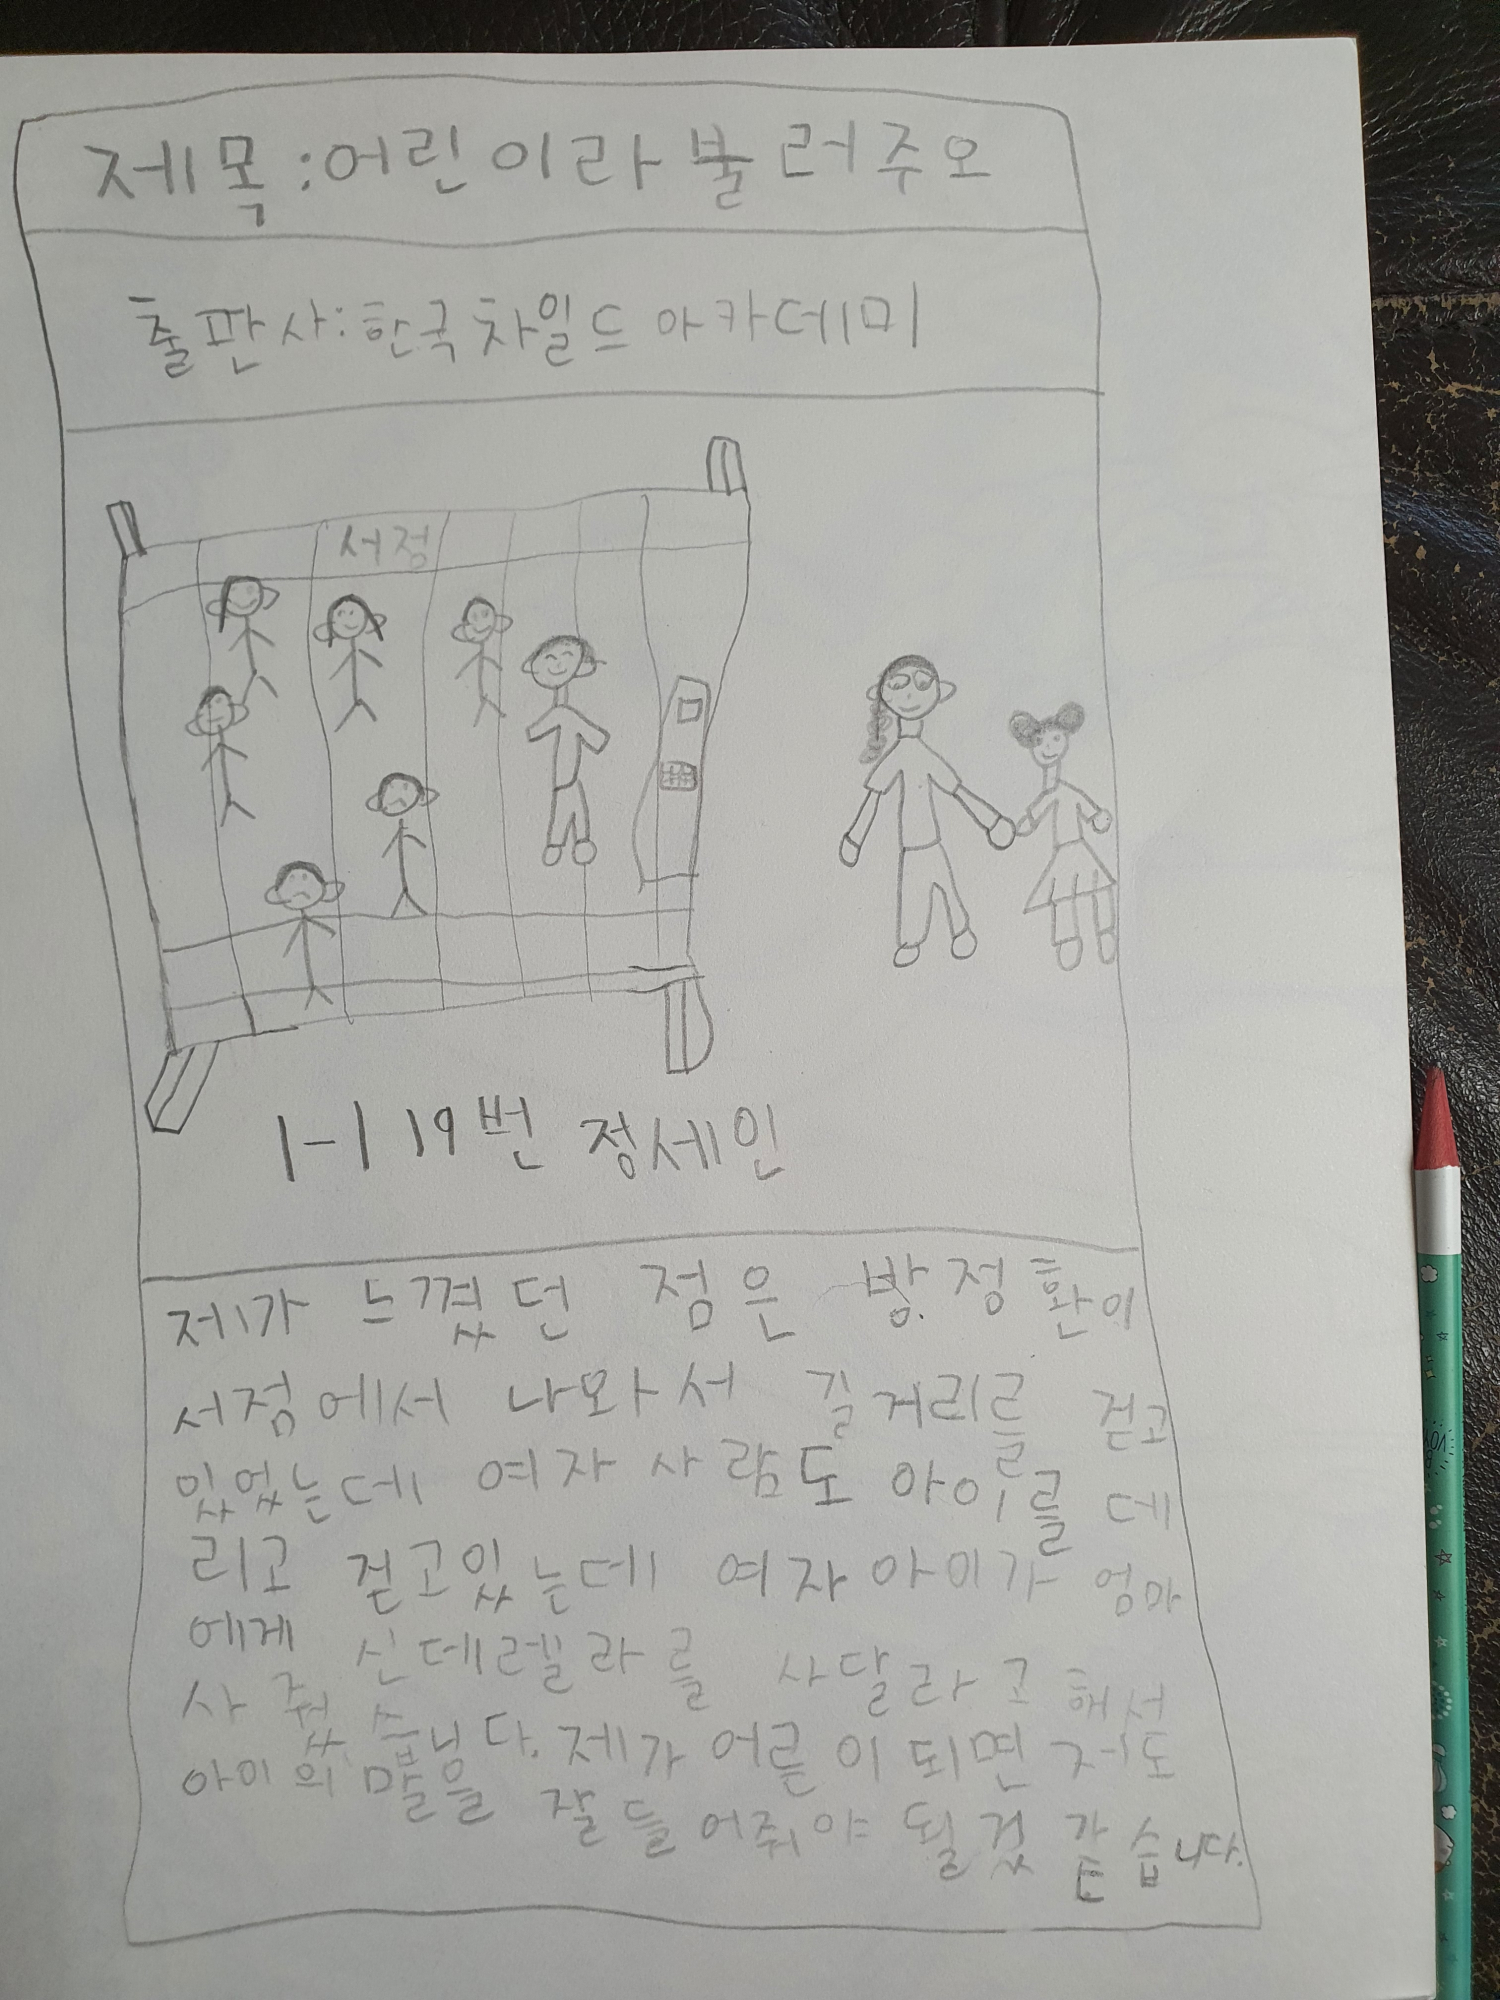 제목:어린이라불러주오
출판사:한국차일드아카데미
서정
1-1 19번 정세인
제가 느꼈던 점은 방정환이
서점에서 나와서 길거리를 걷고
있었는데 여자 사람도 아이를 데
리고 걷고있는데 여자아이가 엄마
에게 신데렐라를 사달라고 해서
사 줬습니다. 제가 어른이 되면 저도
아이의 말을 잘 들어줘야 될것 같습니다.